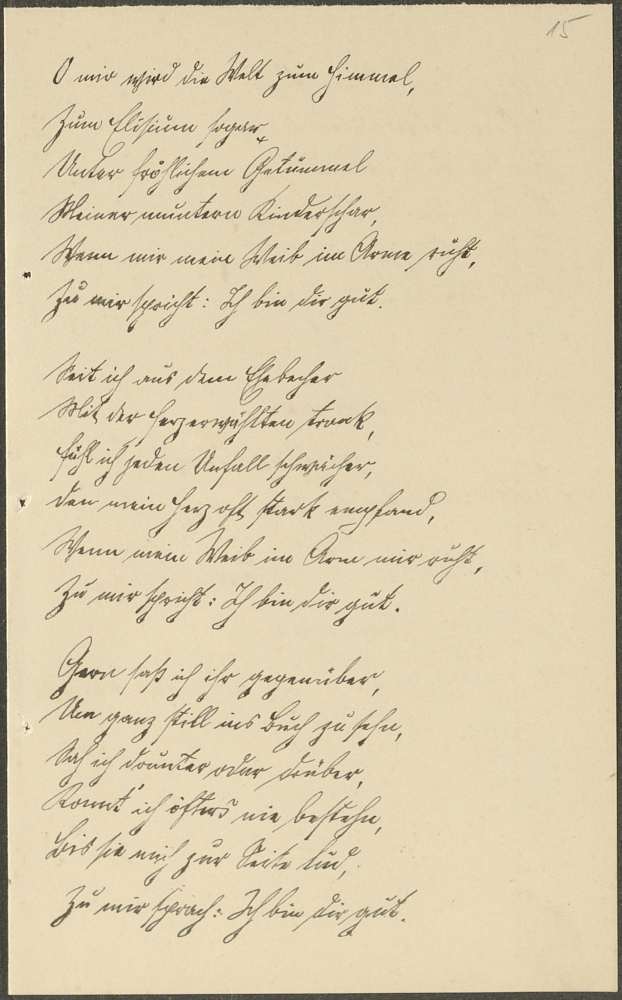 15
O mir wird die Welt zum Himmel,
Zum Elisium sogar,
Unter fröhlichem Getümmel
Meiner muntern Kinderschar,
Wenn mir mein Weib im Arme ruht,
Zu mir spricht: Ich bin dir gut.
Seit ich aus dem Ehebecher
Mit der Herzerwählten trank,
Fühl ich jeden Unfall schwächer,
Den mein Herz oft stark empfand,
Wenn mein Weib im Arm mir ruht,
Zu mir spricht: Ich bin dir gut.
Gern saß ich ihr gegenüber,
Um ganz still ins Buch zu sehn,
Sah ich drunter oder drüber,
Konnt' ich öfters nie bestehn,
Bis sie mich zur Seite lud,
Zu mir sprach: Ich bin dir gut.